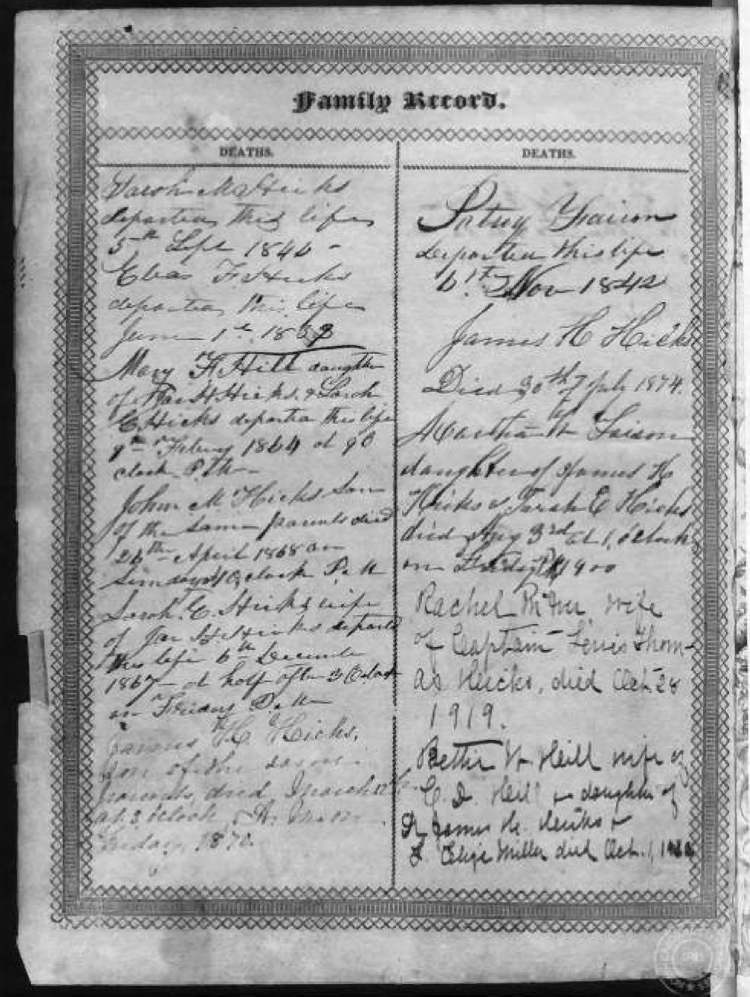 Family Record.
DEATHS.
Sarah M Hicks
departed this life
5th Sept 1846 -
Elias F. Hicks
departed this life
June 1st. 18
Mary F. Hill daughter
of Jas H Hicks. & Sarah
E Hicks departed this life
9th 1864 at 9 O
clock P.M -
John M Hicks Son
of the same parents died
26th April 1868 on
Sunday O, clock P. M
Sarah. E. Hicks wife
of Jas H Hicks departed
this life 6th December
1867 - at half after 3 Oclock
on Friday P. M
James H. Hicks,
son of the same
parents died March
at 3 oclock, A.
Friday, 1872.
DEATHS.
Patsey Faison
departed this life
6th Nov 1842
James H Hicks
Died 30th July 1874.
Martha W Faison
daughter of James H
Hicks & Sarah E Hicks
died Aug 3rd at 1, o'clock
on Friday 1900
Rachel McIver wife
of Captain Lewis Thom-
as Hicks, died Oct 28
1919.
Bettie W Hill wife of
C. D. Hill & daughter of
James H. Hicks &
Miller died Oct. 1,